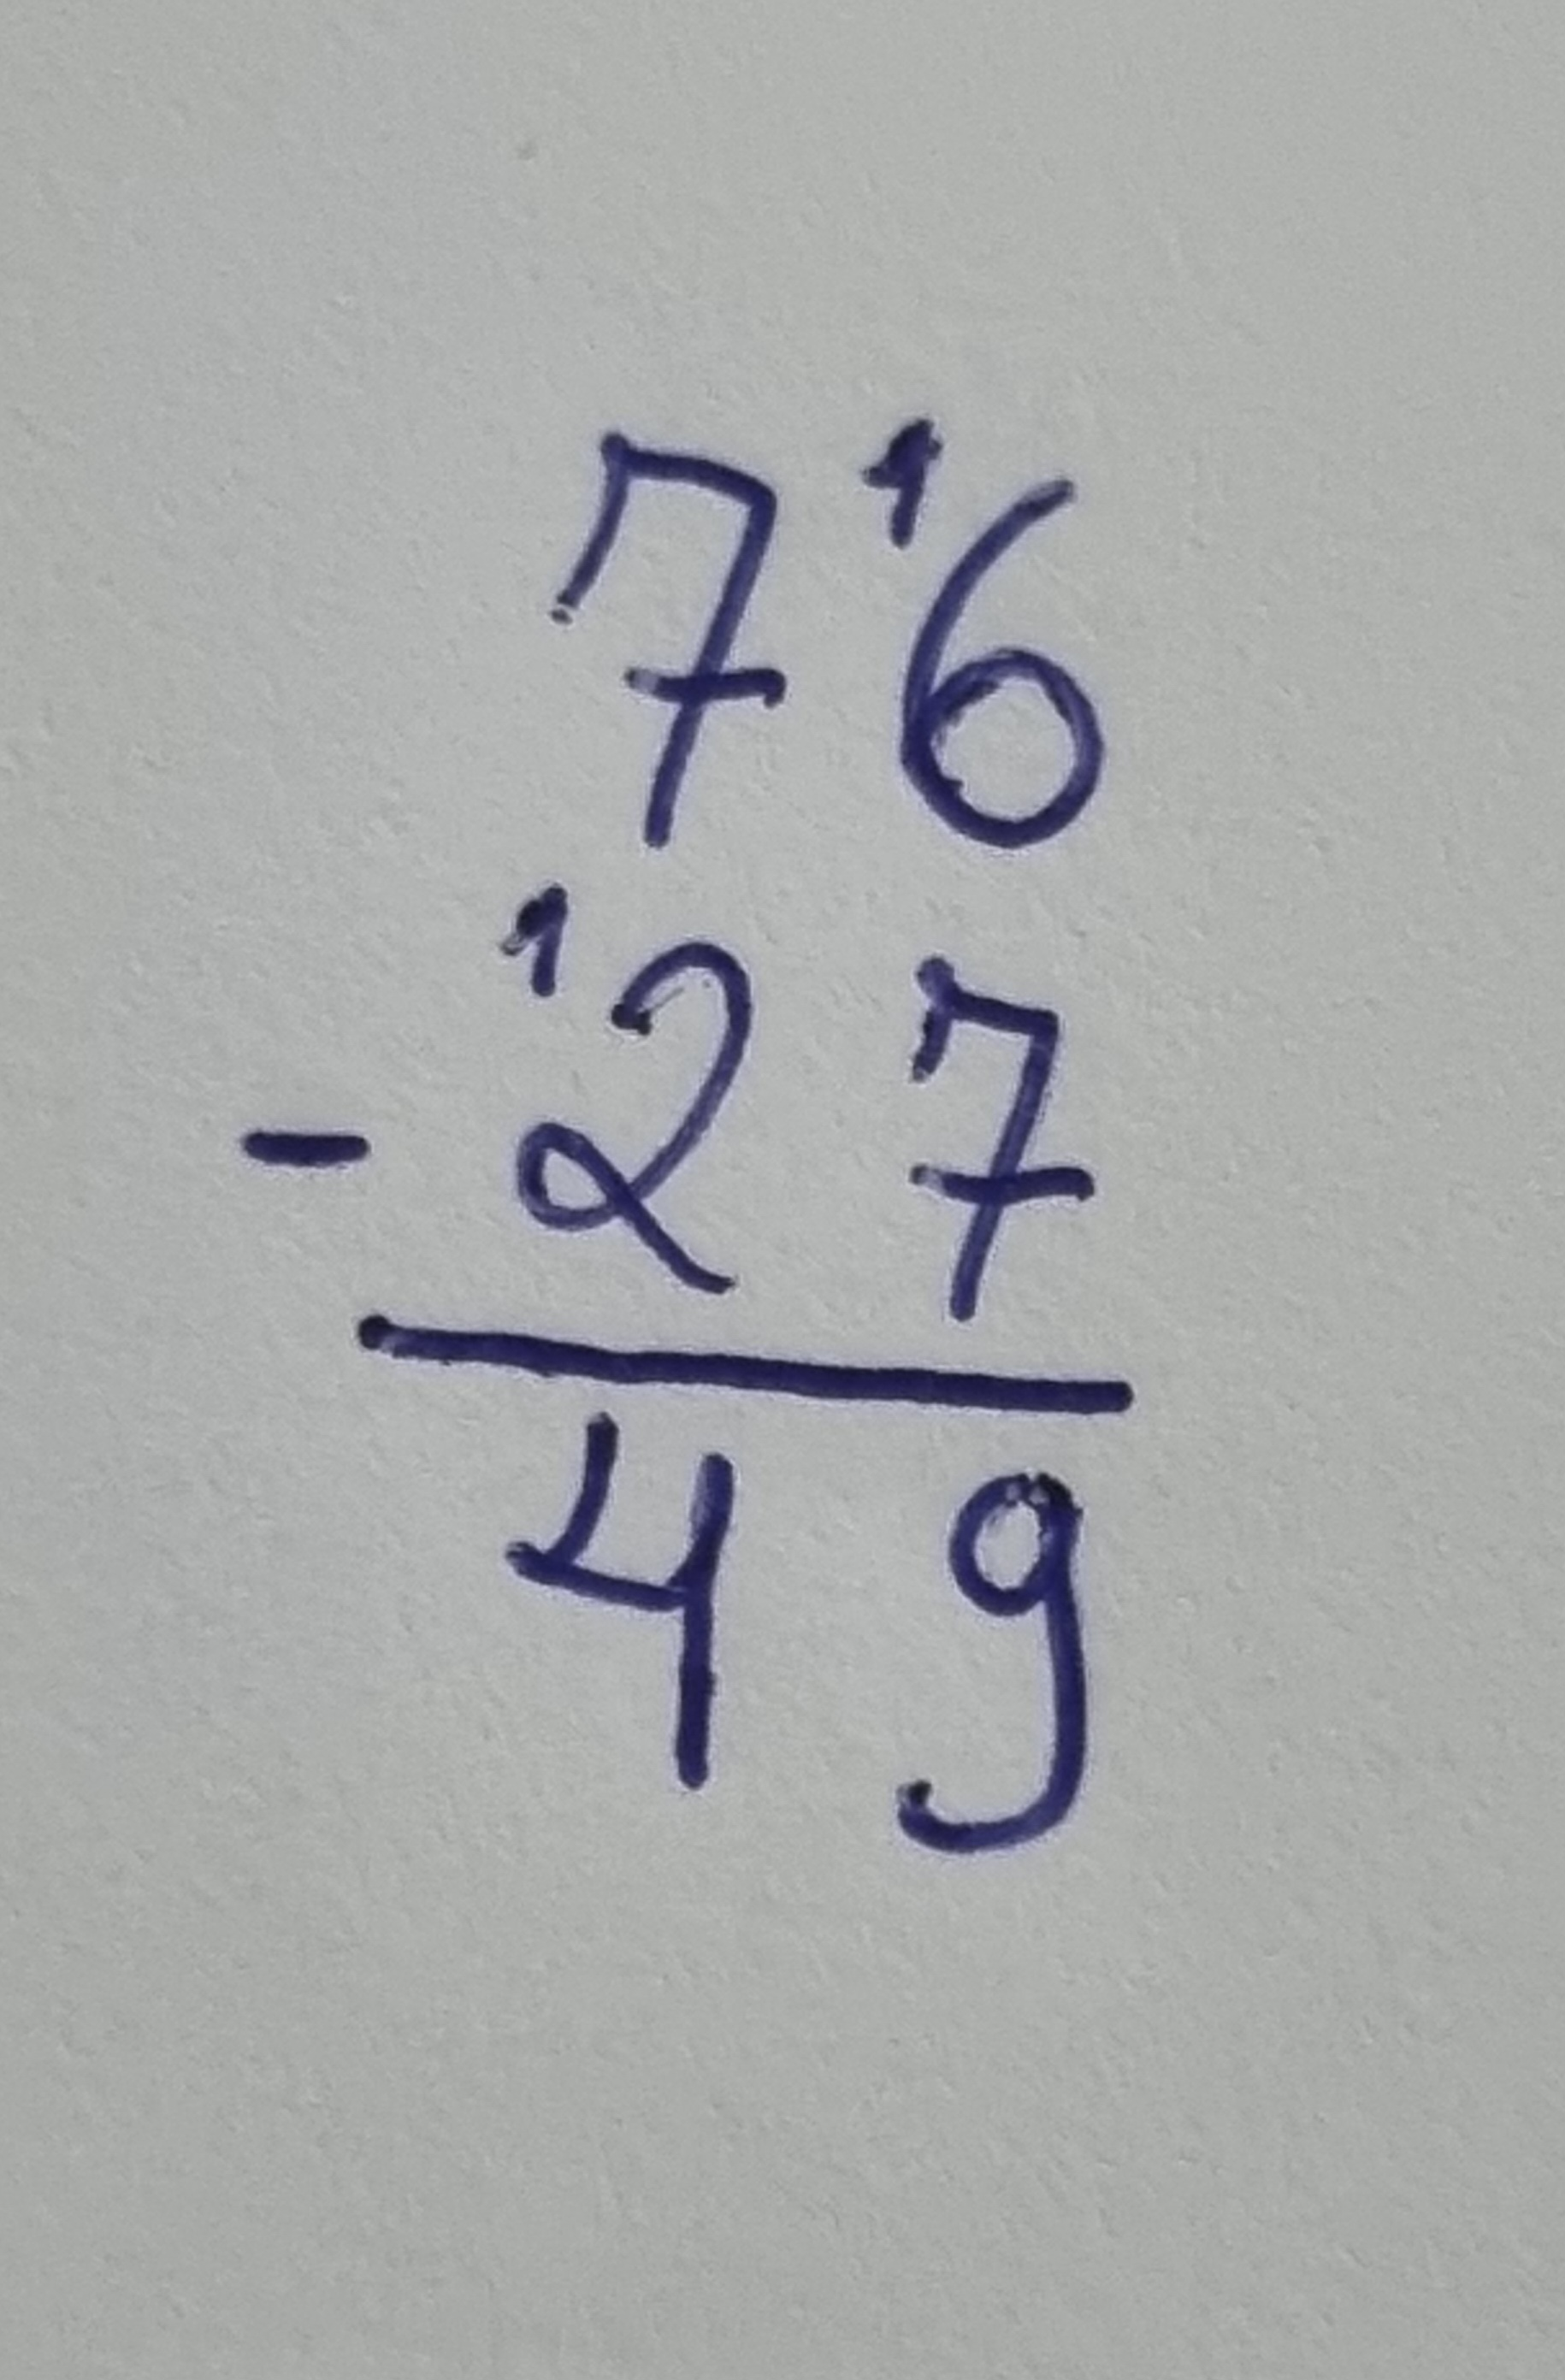 7 ¹6
- ¹2 7
4 9